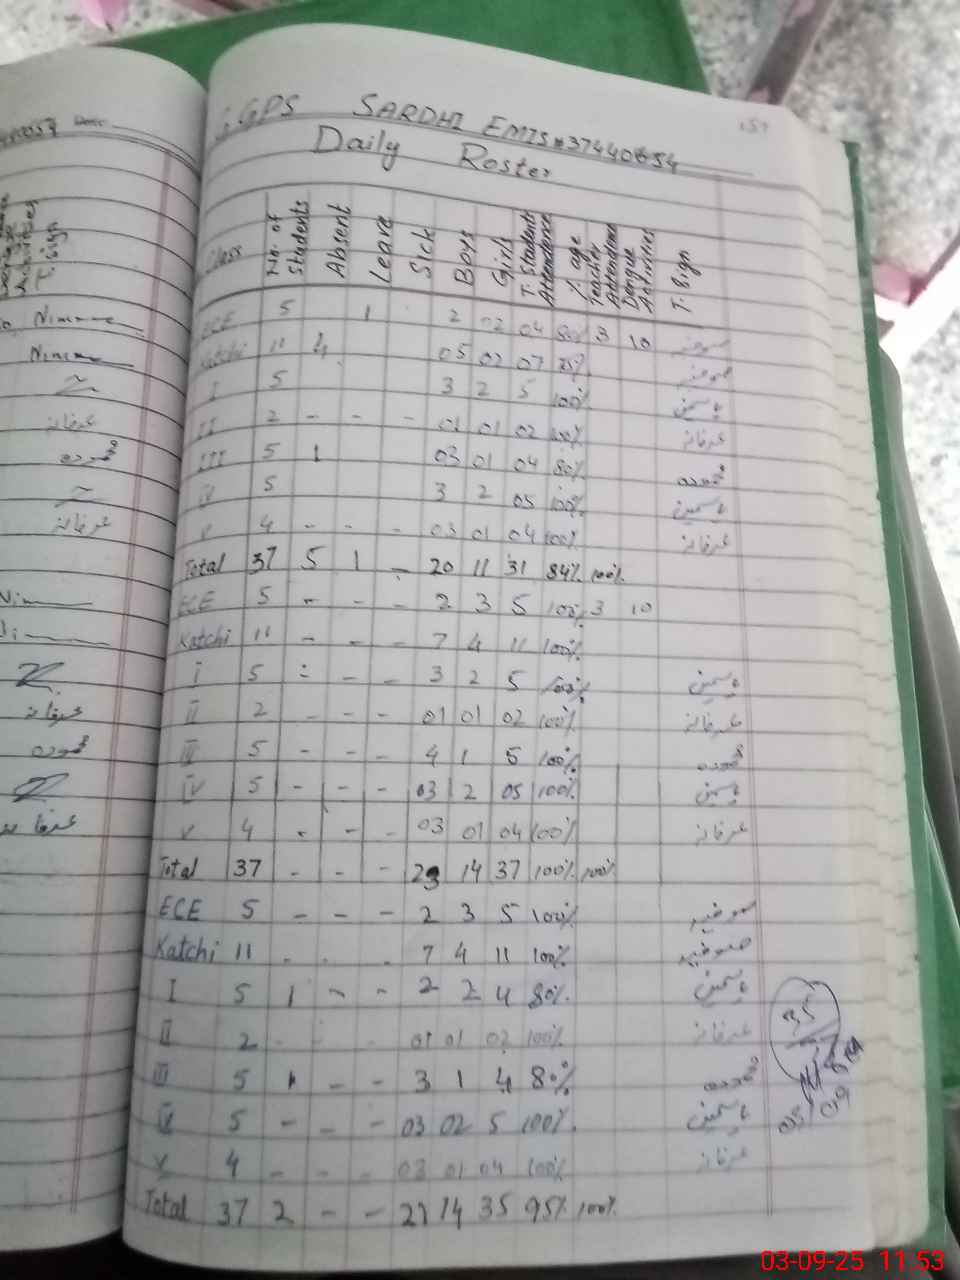 GPS SARDHI EMIS#37440054
157
Daily Roster
Class No. of Students Absent Leave Sick Boys Girls T. Students Attendance % age Teacher Attendance Dengue Activities T. Sign
ECE 5 1 2 02 04 80% 3 10
Katchi 11 4 05 02 07
I 5 3 2 5 100% یاسمین
II 2 - - - 01 01 02 100% عرفانہ
III 5 1 03 01 04 80%
IV 5 3 2 05 100% یاسمین
V 4 - - - 03 01 04 100% عرفانہ
Total 37 5 1 - 20 11 31 84% 100%
ECE 5 - - - 2 3 5 100% 3 10
Katchi 11 - - - 7 4 11 100%
I 5 - - - 3 2 5 100% یاسمین
II 2 - - - 01 01 02 100% عرفانہ
III 5 - - - 4 1 5 100%
IV 5 - - - 03 2 05 100% یاسمین
V 4 - - - 03 01 04 100% عرفانہ
Total 37 - - - 23 14 37 100% 100%
ECE 5 - - - 2 3 5 100%
Katchi 11 - - - 7 4 11 100%
I 5 1 - - 2 2 4 80% یاسمین
II 2 - - - 01 01 02 100% عرفانہ
III 5 1 - - 3 1 4 80%
IV 5 - - - 03 02 5 100% یاسمین
V 4 - - - 03 01 04 100% عرفانہ
Total 37 2 - - 21 14 35 95% 100%
35
03/09
03-09-25 11:53